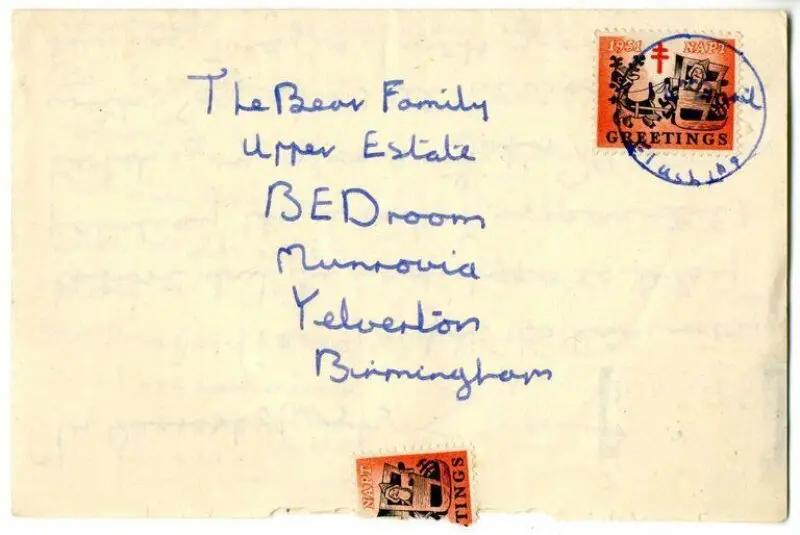 1951 NAPT
GREETINGS
The Bear Family
Upper Estate
BEDroom
Munrovia
Yelverton
Birmingham
NAPT
TINGS